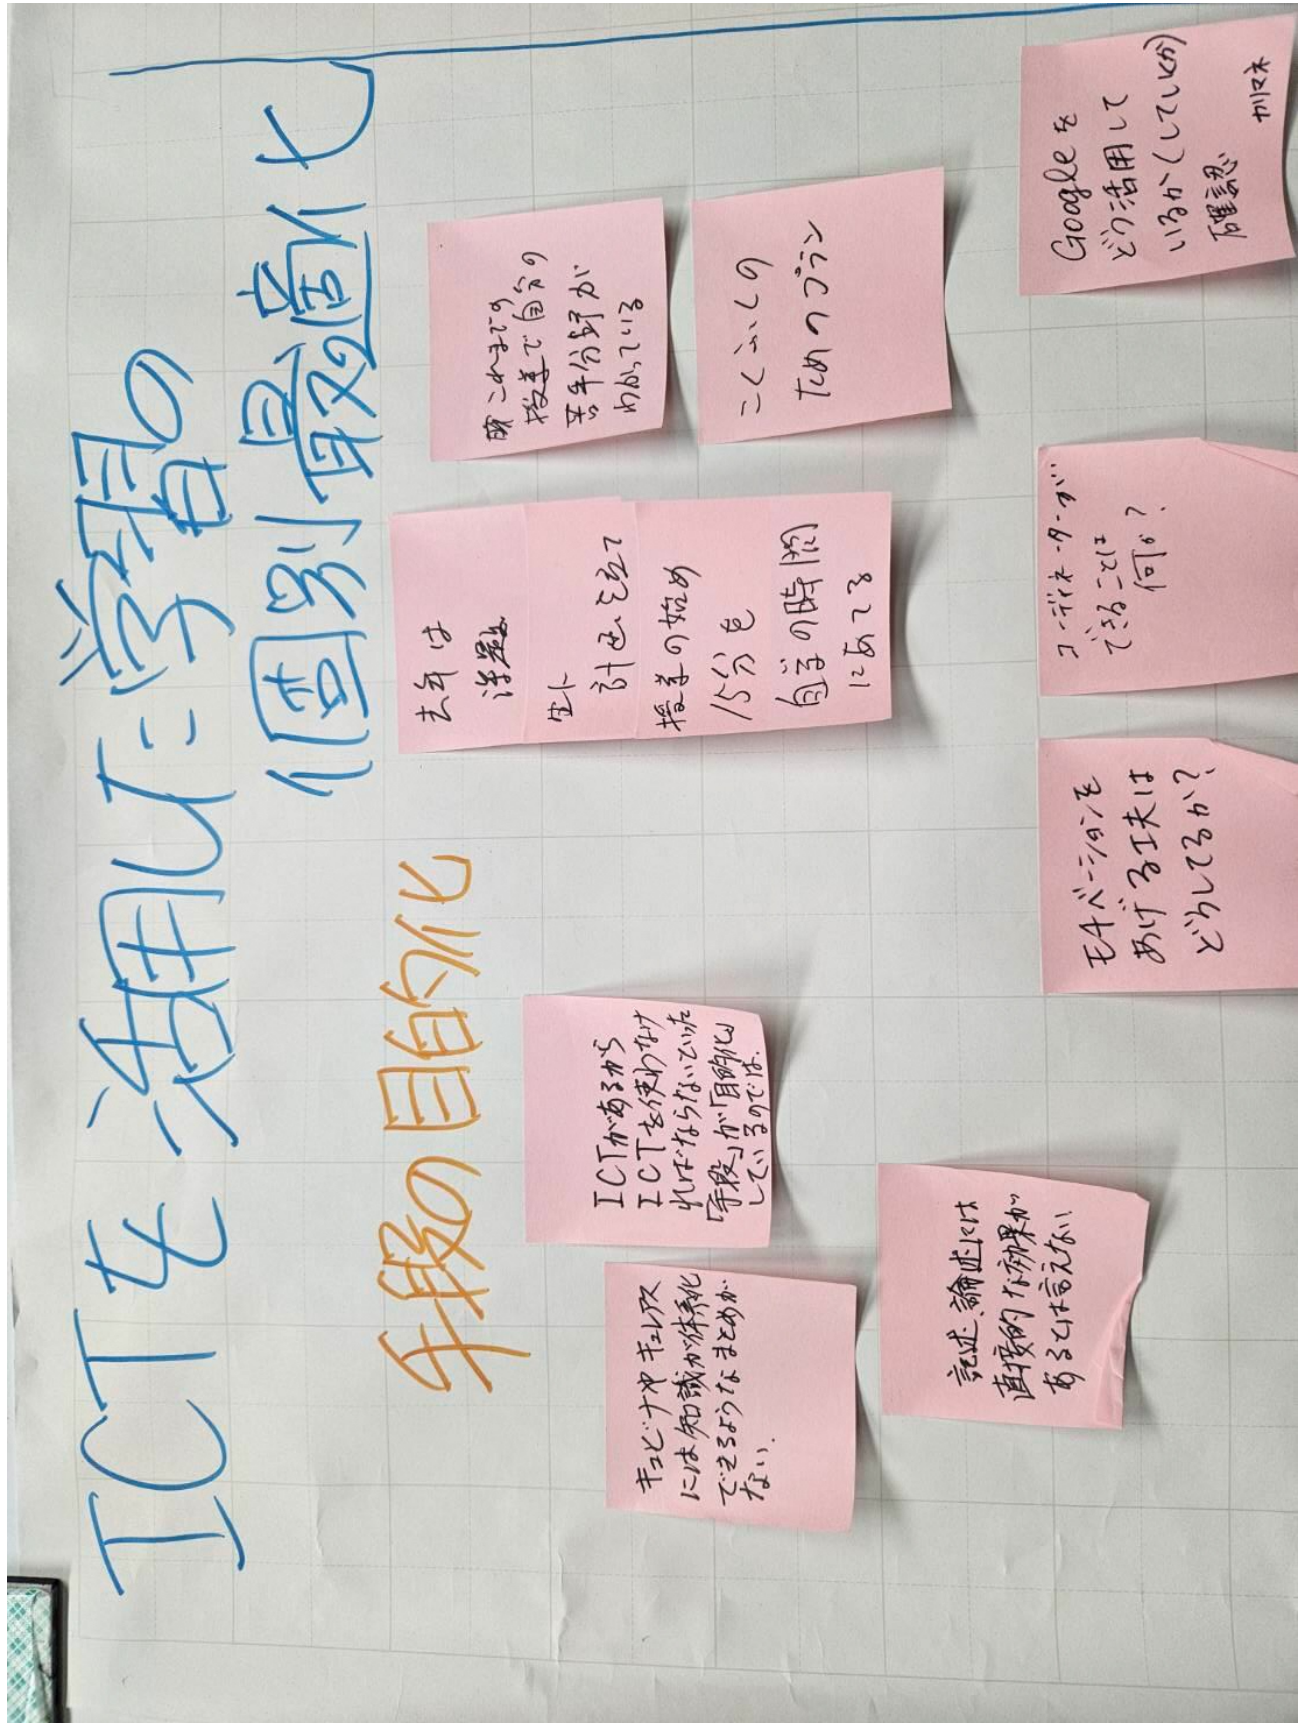 ICTを活用した学習の
個別最適化
手段の目的化
キュビナやキュレアス
には知識が体系化
できるようなまとめが
ない.
ICTがあるから
ICTを使わなけ
ればならないといった
「手段」が「目的化」
しているのでは.
記述、論述には
直接的な効果が
あるとは言えない.
去年は
課題
生ト
計画を立て
授業の始め
15分を
自学の時間
にあてる
これまでの
授業で自分の
苦手分野が
わかっている
こくふくの
ためのプラン
モチベーションを
あげる工夫は
どうしてるか?
コーディネーターが
できることは
何か?
Googleを
どう活用して
いるか(していくか)
確認
カリマネ